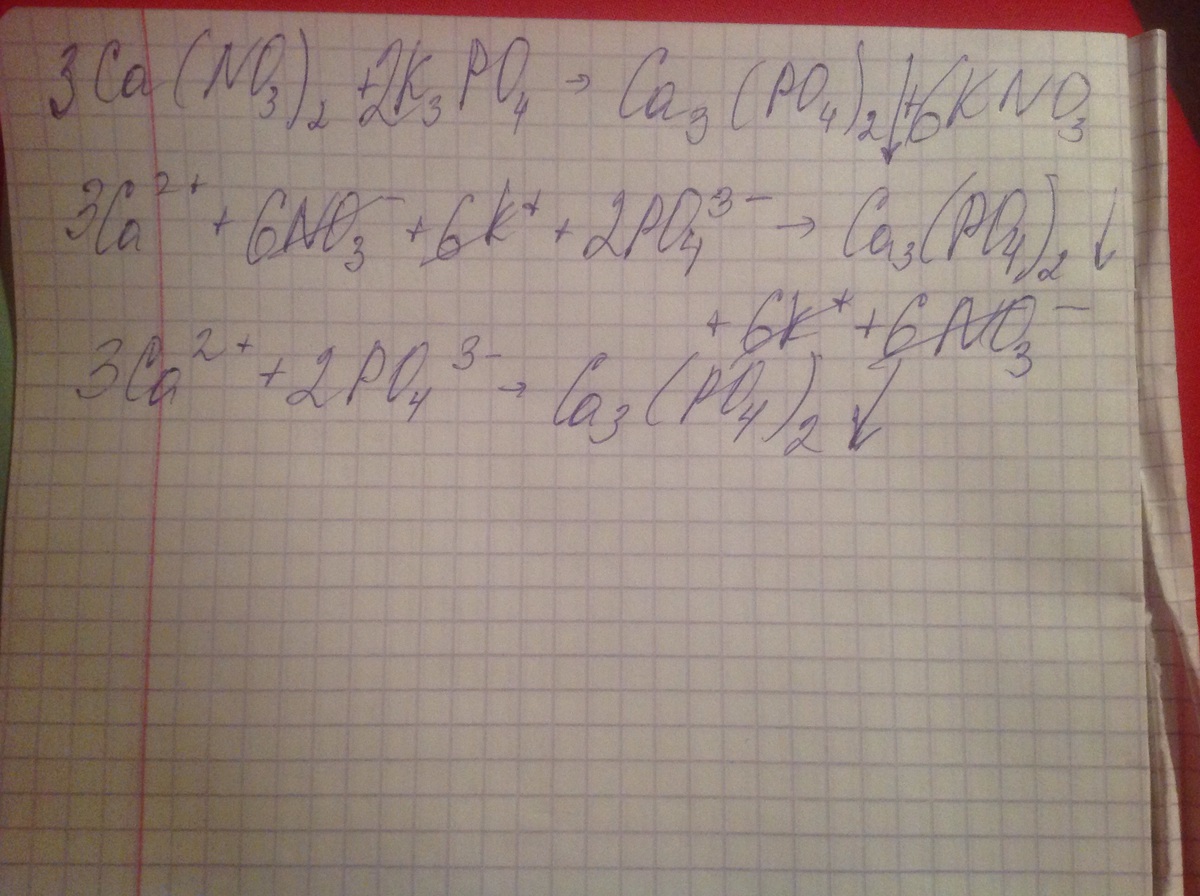 3Ca(NO₃)₂ + 2K₃PO₄ → Ca₃(PO₄)₂↓ + 6KNO₃
3Ca²⁺ + 6NO₃⁻ + 6K⁺ + 2PO₄³⁻ → Ca₃(PO₄)₂↓
+ 6K⁺ + 6NO₃⁻
3Ca²⁺ + 2PO₄³⁻ → Ca₃(PO₄)₂↓